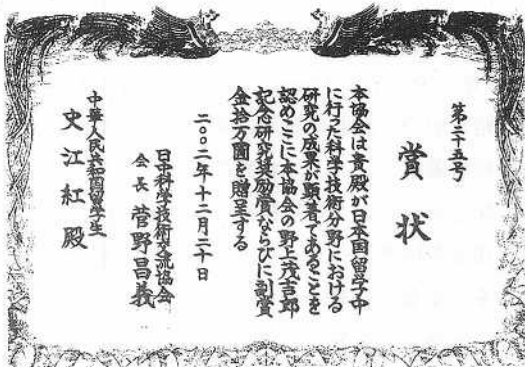 第二十五号
賞状
本協会は貴殿が日本国留学中
に行った科学技術分野における
研究の成果が顕著であることを
認めここに本協会の野上茂吉郎
記念研究奨励賞ならびに副賞
金拾万圓を贈呈する
二〇〇二年十二月二十日
日中科学技術交流協会
会長 菅野昌義
中華人民共和国留学生
史江紅殿